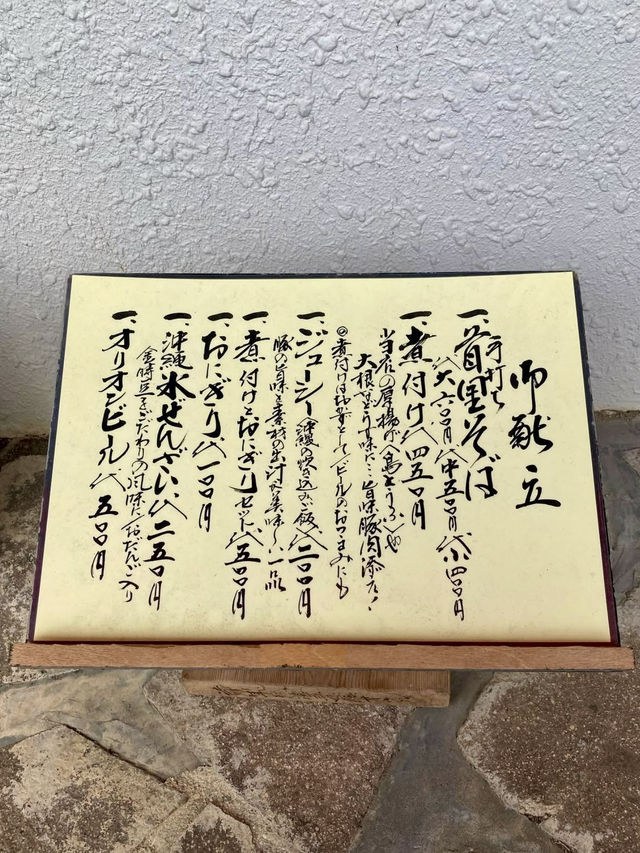 御献立
手打ち
一、首里そば
代大六〇〇円 代中五〇〇円 代小四〇〇円
一、煮付け代四五〇円
当店の厚揚げ
大根 味に… 旨味豚肉添え！
煮付けはおかずとして、ビールのおつまみにも
一、ジューシー 沖縄の炊き込みご飯 代二〇〇円
豚の旨味と素材の出汁が美味〜い一品
一、煮付けとおにぎりセット代五〇〇円
一、おにぎり代一〇〇円
一、沖縄氷ぜんざい代二五〇円
金時豆 こだわりの風味に おだんご入り
一、オリオンビール代五〇〇円